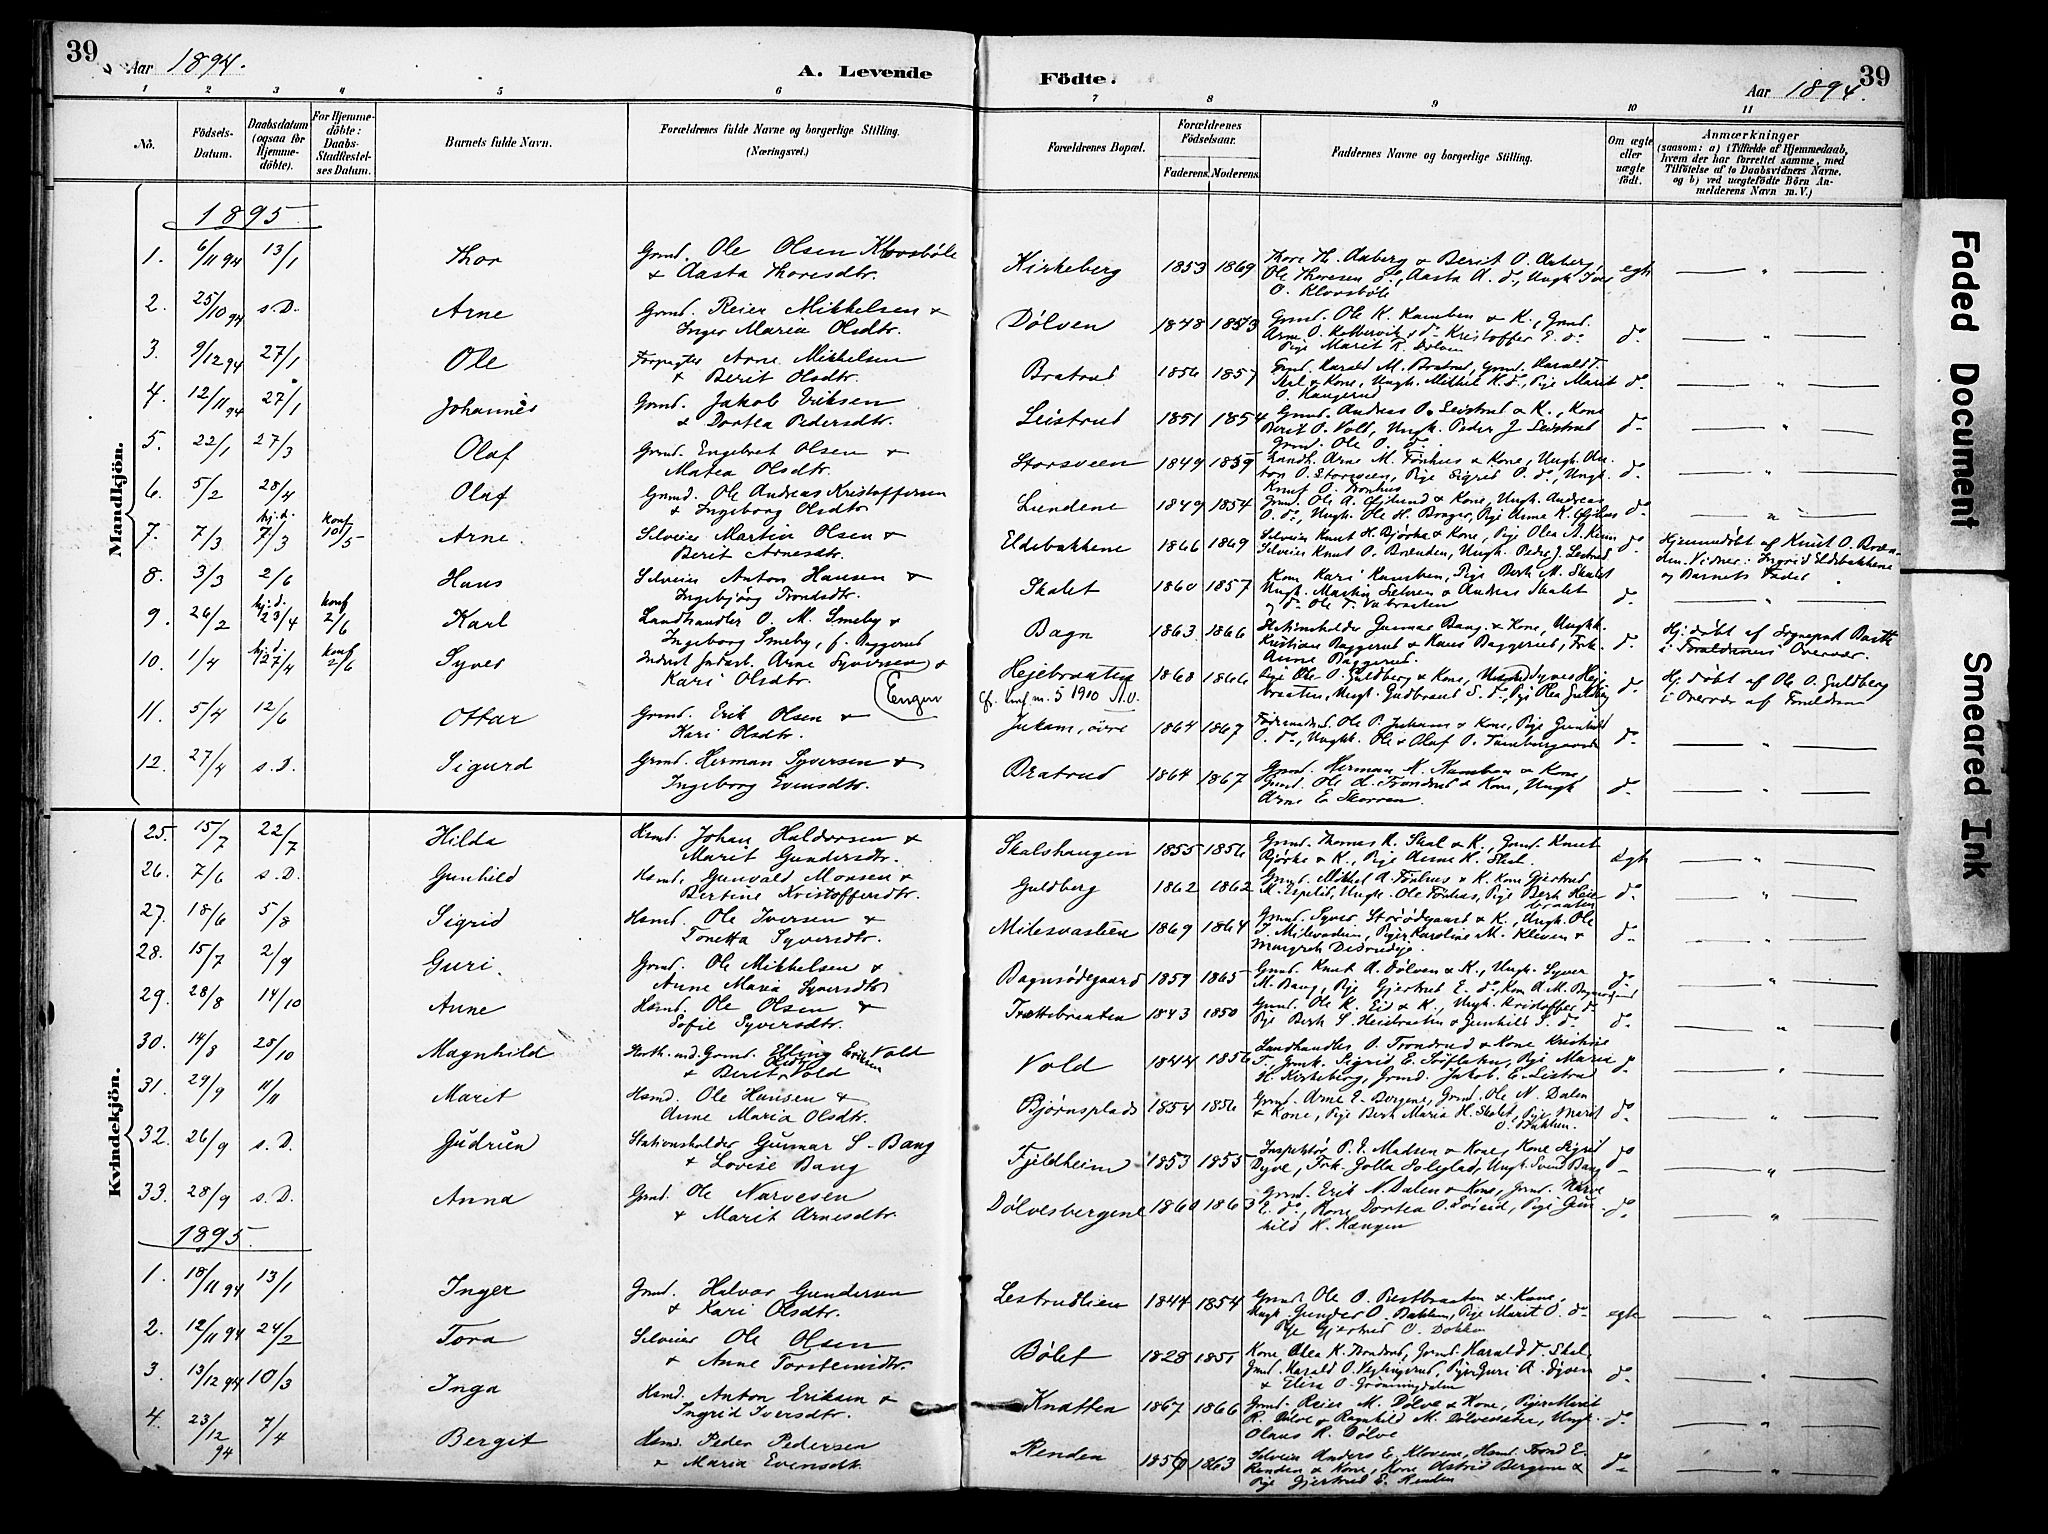 39
Aar 1894.
A. Levende
Födte.
Aar 1894.
39
1 2 3 4 5 6 7 8 9 10 11
No.
Födsels-Datum.
Daabsdatum (ogsaa for Hjemme-döbte).
For Hjemme-döbte: Daabs-Stadfæstel-ses Datum.
Barnets fulde Navn.
Forældrenes fulde Navne og borgerlige Stilling. (Næringsvei.)
Forældrenes Bopæl.
Forældrenes Födselsaar.
Faderens. Moderens.
Faddernes Navne og borgerlige Stilling.
Om ægte eller uægte födt.
Anmærkninger
(saasom: a) i Tilfælde af Hjemmedaab, hvem der har forrettet samme, med Tilföielse af to Daabsvidners Navne, og b) ved uægtefödte Börn An-melderens Navn m. V.)
Mandkjön.
1895
1. 6/11 94 13/1 Thor Grmd. Ole Olsen Klovsbøle & Aasta Thoresdtr. Kirkeberg 1853 1869 Thore H. Aaberg & Berit O. Aaberg, Ole Thoresen do, Aasta A. do, Ungk. Iver O. Klovsbøle egte
2. 25/10 94 s.D. Arne Grmd. Reier Mikkelsen & Inger Maria Olsdtr. Dølven 1848 1853 Grmd. Ole K. Ramben & K., Grmd. Arne O. & do Kristoffer E. do Pige Marit R. Dølven do
3. 9/12 94 27/1 Ole Forpagter Arne Mikkelsen & Berit Olsdtr. Bratrud 1856 1857 Grmd. Harald M. Bratrud, Grmd. Harald T. Skal & Kone, Ungk. Mikkel H. do, Pige Marit O. Haugerud do
4. 12/11 94 27/1 Johannes Grmd. Jakob Eriksen & Dortea Pedersdtr. Leistrud 1851 1854 Grmd. Andreas O. Leistrud & K., Kone Berit O. Vold, Ungk. Peder J. Leistrud Grmd. Ole O. do do
5. 22/1 27/3 Olaf Grmd. Engebret Olsen & Matea Olsdtr. Storsveen 1849 1859 Landh. Arne M. Fønhus & Kone, Ungk. O. Storsveen, Pige Sigrid O. do, Ungk. Knut O. Fønhus do
6. 5/2 28/4 Olaf Grmd. Ole Andreas Kristoffersen & Ingeborg Olsdtr. Lundene 1849 1854 Grmd. Ole A. & Kone, Ungk. Andreas O. do, Ungk. Ole H. Pige Anne K. do
7. 7/3 hj.d. 7/3 konf 10/5 Arne. Selveier Martin Olsen & Berit Arnesdtr. Eldebakkene 1866 1869 Selveier Knut H. Bjørke & Kone, Pige Olea A. Selveier Knut O. Brænden, Ungk. Peder J. Lestrud do Hjemmedøbt af Knut O. Bræn-den. Vidner: Ingrid Eldebakkene og Barnets Fader
8. 3/3 2/6 Hans Selveier Anton Hansen & Ingebjørg Trondsdtr. Skalet 1860 1857 Kone Kari Ramben, Pige Berit M. Skalet Ungk. Martin & Andreas Skalet og do Ole T. do
9. 26/2 hj.d. 23/4 konf 2/6 Karl Landhandler O. M. Smeby & Ingeborg Smeby, f. Baggerud Bagn 1863 1866 Stationsholder Gunnar Bang & Kone, Ungk. Kristian Baggerud & Hans Baggerud, Frk. Anna Baggerud. do Hj. døbt af Sognepr. i Forældrenes Overvær.
10. 1/4 hj.d. 27/4 konf 2/6 Syver Inderst Arne Syversen & Kari Olsdtr. (Engen) Hejebraaten 1868 1866 Ole O. Guldberg & Kone, Syver Heje-braaten, Ungk. Gudbrand S. do, Pige Olea Guldberg do Hj. døbt af Ole O. Guldberg i Overvær af Forældrene
11. 5/4 12/6 Ottar Grmd. Erik Olsen & Kari Olsdtr. Jukam, øvre 1864 1867 Ole P. Jukam & Kone, Pige Gunhild O. do, Ungk. Ole & Olaf O. do
12. 27/4 s.D. Sigurd Grmd. Herman Syversen & Ingeborg Evensdtr. Bratrud 1864 1867 Grmd. Herman N. Ramben & Kone Grmd. Ole A. & Kone, Ungk. Arne E. do
Kvindekjön.
25. 15/7 22/7 Hilda Hsmd. Johan Haldorsen & Marit Gundersdtr. Skalshaugen 1855 1856 Grmd. Thomas K. Skal & K., Grmd. Knut Bjørke & K., Pige Anne K. Skal. egte
26. 7/6 s.D. Gunhild Hsmd. Gunvald Monsen & Bertine Kristoffersdtr. Guldberg 1862 1862 Grmd. Mikkel A. Fønhus & K. Kone Gjertrud M. Espelid, Ungk. Ole Fønhus, Pige Berit Heie-braaten do
27. 18/6 5/8 Sigrid Hsmd. Ole Iversen & Tonetta Syversdtr. Milesvastien 1869 1864 Grmd. Syver Storødegaard & K., Ungk. Ole Piger Karoline M. Kleven & do
28. 15/7 2/9 Guri. Grmd. Ole Mikkelsen & Anne Maria Syversdtr. Bagnsødegaard 1859 1865 Grmd. Knut A. Dølven & K., Ungk. Syver M. Bang, Pige Gjertrud E. do, Kone A. M. do
29. 28/8 14/10 Anne Hsmd. Ole Olsen & Sofie Syversdtr. Trættebraaten 1843 1850 Grmd. Ole K. Eid & K., Ungk. Kristoffer do Pige Berit S. Heiebraaten & Gunhild S. do do
30. 14/8 28/10 Magnhild Grmd. Elling Eriksen Vold & Berit Olsd. Vold Vold 1844 1856 Landhandler O. Trondrud & Kone Kristofie T., Sigrid E. Sørflaten, Pige Maria H. Kirkeberg, Grmd. Jakob E. Leistrud do
31. 29/9 11/11 Marit Hsmd. Ole Hansen & Anne Maria Olsdtr. Bjørnsplads 1854 1856 Grmd. Arne E. Bergene, Grmd. Ole N. Dalen & Kone, Pige Berit Maria H. Skalet, Pige Marit O. Bakken. do
32. 26/9 s.D. Gudrun Stationsholder Gunnar S. Bang & Lovise Bang Fjeldheim 1853 1855 Inspektør P. E. Madsen & Kone, Kone Sigrid Dyve, Frk. Jolla Solglad, Ungk. Svend Bang do
33. 28/9 s.D. Anna Grmd. Ole Narvesen & Marit Arnesdtr. Dølvesbergene 1860 1863 Grmd. Erik N. Dalen & Kone, Grmd. Narve E. do, Kone Dortea O. Pige Gun-hild H. Haugen do
1895.
1. 18/11 94 13/1 Inger Grmd. Halvor Gundersen & Kari Olsdtr. Lestrudlien 1844 1854 Grmd. Ole O. Prestbraaten & Kone, Ungk. Gunder O. Bakken, Pige Marit O. do Pige Gjertrud O. Dokken egte
2. 12/11 94 24/2 Tora Selveier Ole Olsen & Anne Torsteinsdtr. Bølet 1828 1851 Kone Olea K. Trondrud, Grmd. Harald T. Skal, Grmd. Harald O. Piger Guri A. & Elisa O. Grønningdalen do
3. 13/12 94 10/3 Inga Hsmd. Anton Eriksen & Ingrid Iversdtr. Knatten 1867 1866 Grmd. Reier M. Dølve & Kone, Piger Marit R. Dølve & Ragnhild M. Dølveseter, Ungk. Olaus R. Dølve do
4. 23/12 94 7/4 Bergit Hsmd. Peder Pedersen & Maria Evensdtr. Renden 1856 1863 Selveier Anders E. Kloven, Hsmd. Trond E. Renden & Kone, Kone Astrid Bergene & Pige Gjertrud E. Renden do
Faded Document
Smeared Ink